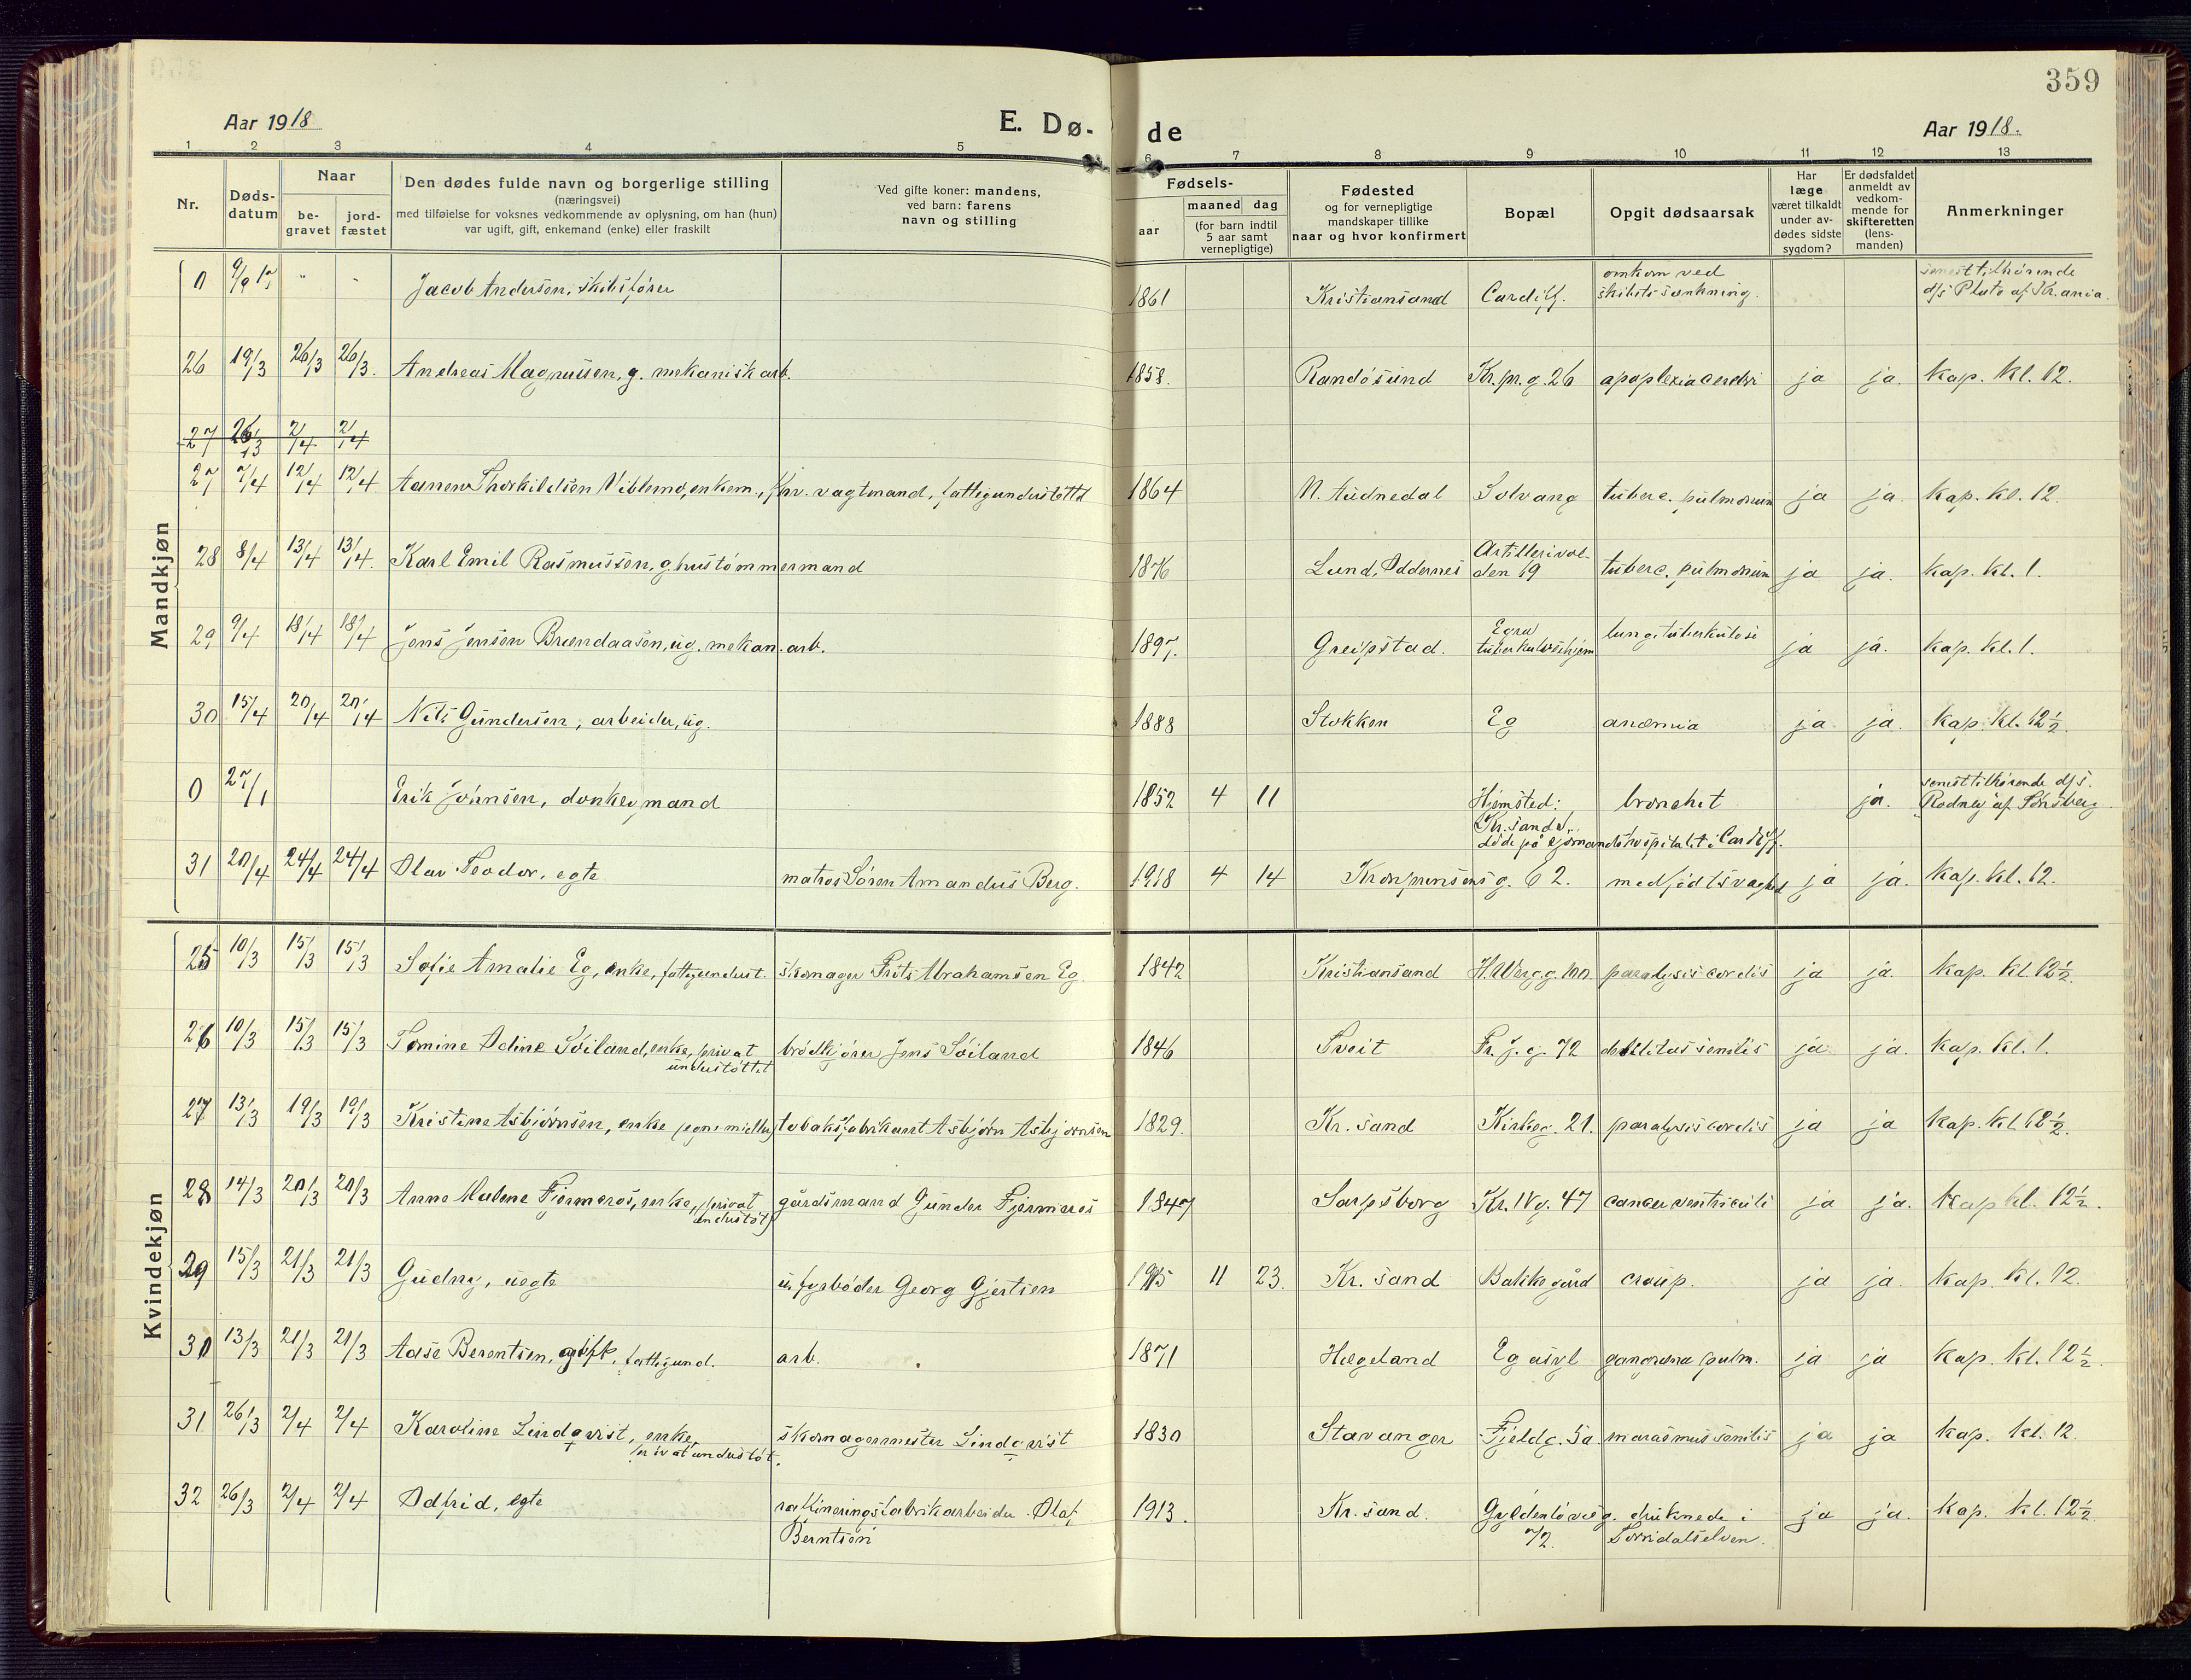 359
Aar 1918 E. Dø- de Aar 1918.
1 2 3 4 5 6 7 8 9 10 11 12 13
Nr.
Døds-
datum
Naar
be-
gravet
jord-
fæstet
Den dødes fulde navn og borgerlige stilling
(næringsvei)
med tilføielse for voksnes vedkommende av oplysning, om han (hun)
var ugift, gift, enkemand (enke) eller fraskilt
Ved gifte koner: mandens,
ved barn: farens
navn og stilling
Fødsels-
aar
maaned dag
(for barn indtil
5 aar samt
vernepligtige)
Fødested
og for vernepligtige
mandskaper tillike
naar og hvor konfirmert
Bopæl
Opgit dødsaarsak
Har
læge
været tilkaldt
under av-
dødes sidste
sygdom?
Er dødsfaldet
anmeldt av
vedkom-
mende for
skifteretten
(lens-
manden)
Anmerkninger
Mandkjøn
0 9/9 17 " " Jacob Andersen, skibsfører 1861 Kristiansand Cardiff. omkom ved skibets sænkning. senest tilhørende d/s Plato af Kr.ania.
26 19/3 26/3 26/3. Andreas Magnussen, g. mekanisk arb. 1858. Randøsund Kr.pr.g. 26 apoplexia cerebri ja ja. Kap. kl. 12.
27 26/3 2/4 2/4
27 7/4 12/4 12/4 Aanen Thorkildsen Viblemo, enkem., fhv. vagtmand, fattigunderstøttd 1864 N. Audnedal Solvang tuberc. pulmonum ja ja. Kap. kl. 12.
28 8/4 13/4 13/4. Karl Emil Rasmussen, g. hustømmermand 1876 Lund, Oddernes Artillerivolden 19 tuberc. pulmonum ja ja. Kap. kl. 1.
29 9/4 18/4 18/4 Jens Jensen Brændaasen, ug. mekan. arb. 1897. Greipstad. Egra tuberkulosehjem lungetuberkulose ja ja. Kap. kl. 1.
30 15/4 20/4 20/4 Nils Gundersen, arbeider, ug. 1888 Stokken Eg anæmia ja ja. Kap. kl. 12½
0 27/1 Erik Johnsen, donkeymand 1852 4 11 Hjemsted: Kr.sand., døde på sjømandshospitalet i Cardiff. bronchit ja. senest tilhørende d/s. "Rodney" af Tønsberg.
31 20/4 24/4 24/4 Olav Teodor, egte matros Søren Amandus Berg. 1918 4 14 Kronprinsensg. 62. medfødt svaghed ja ja. Kap. kl. 12.
Kvindekjøn
25 10/3 15/3 15/3 Sofie Amalie Eg, enke, fattigunderst. skomager Frits Abrahamsen Eg. 1842 Kristiansand H.Werg.g. 100. paralysis cordis ja ja. Kap. kl. 12½.
26 10/3 15/3 15/3 Tomine Odine Söiland, enke, privat understöttet brödkjører Jens Söiland 1846 Tveit Fr. j. g. 72 debilitas senilis ja ja. Kap. kl. 1.
27 13/3 19/3 19/3 Kristine Asbjørnsen, enke (egne midler) tobaksfabrikant Asbjørn Asbjørnsen 1829. Kr. sand Kirkeg. 21. paralysis cordis ja ja Kap. kl. 12½.
28 14/3 20/3 20/3 Anne Malene Fjermeros, enke, (privat understøt) gårdsmand Gunder Fjermeros 1847 Sarpsborg Kr. IVg. 47 cancer ventriculi ja ja. Kap kl. 12½.
29 15/3 21/3 21/3 Gudny, uegte u. fyrbøder Georg Gjertsen 1915 11 23. Kr. sand Bakkegård croup. ja ja. Kap. kl. 12.
30 13/3 21/3 21/3 Aase Berentsen, gift, fattigund. arb. 1871 Hægeland Eg asyl gangræna pulm. ja ja Kap. kl. 12½.
31 26/3 2/4 2/4 Karoline Lindqvist, enke, privat understøt. skomagermester Lindqvist 1830 Stavanger Fjeldg. 5a marasmus senilis ja ja Kap. kl. 12.
32 26/3 2/4 2/4 Odfrid, egte raffineringsfabrikarbeider Olaf Berntsen 1913. Kr. sand. Gyldenløvesg. 72. druknede i Torridalselven. ja ja. Kap. kl. 12½